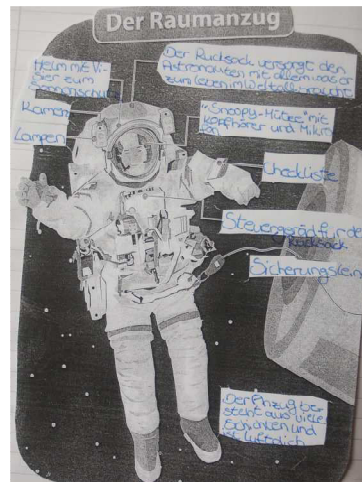 Der Raumanzug
Helm mit Vi-
sier zum
Sonnenschutz
Kamera
Lampen
Der Rucksack versorgt den
Astronauten mit allem was er
zum leben im Weltall braucht
"Snoopy-Mütze" mit
Kopfhörer und Mikro
fon
Checkliste
Steuergerät für de
Rucksack
Sicherungslein
Der Anzug be
steht aus viele
Schichten und
ist luftdich